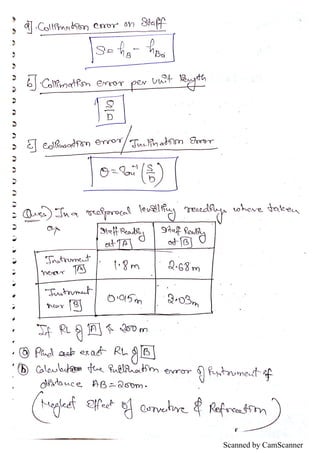 a]. Collimation error on Staff
S = hB - hBo
b] Collimation error per unit length
S/D
c] collimation error / Inclination Error
θ = tan⁻¹ (S/D)
Ques) In a reciprocal levelling readings where taken
as
Staff Reading at [A] Staff Reading at [B]
Instrument near [A] 1.8m 2.68m
Instrument near [B] 0.915m 2.03m
If RL of [A] is 200m
(a) Find exact RL of [B]
(b) Calculate the Inclination error of Instrument if
distance AB = 200m.
(Neglect Effect of Curvature & Refraction)
Scanned by CamScanner